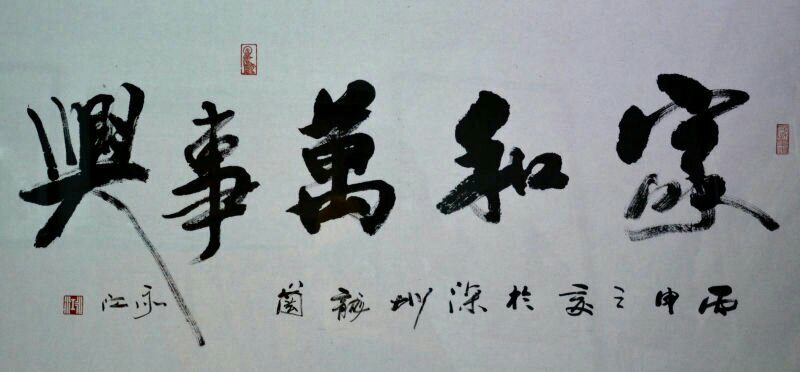 家和萬事興
丙申之夏於深圳龍
江